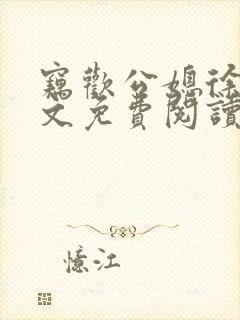 竊歡公媳徐
文免費閱讀
憶江